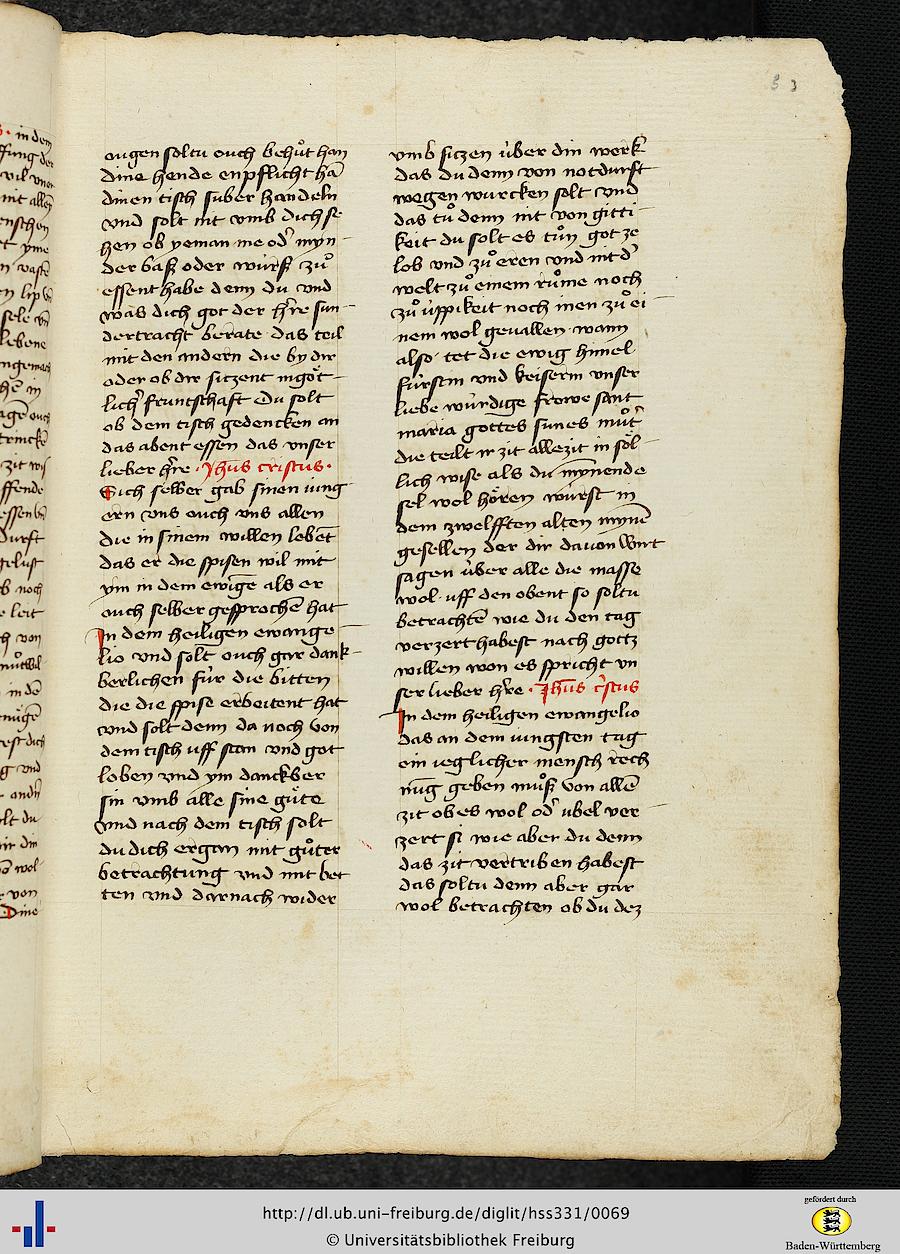 3 3
ougen soltu ouch behuͦt han
dine hende enpflicht hā
dinen tisch suber handeln
vnd solt nit vmb dich se
hen ob yeman me od' myn
der baß oder wurß zuͦ
essent habe denn du vnd
was dich got der h're sun
dertracht berate das teil
mit den andern die by dir
oder ob dir siczent in goͤt
lich' fruntschaft Du solt
ob dem tisch gedencken an
das abent essen das vnser
lieber h're · Jh̄us cristus ·
Sich selber gab sinen iung
ern vns ouch vns allen
die in sinem willen lebēt
das er die spisen wil mit
ym in dem ewigē als er
ouch selber gesprochē hat
In dem heiligen ewange
lio vnd solt ouch gar dank
berlichen für die bitten
die die spise erbeitent hat
vnd solt denn da noch von
dem tisch vff stan vnd got
loben vnd ym danckber
sin vmb alle sine guͤte
vnd nach dem tisch solt
du dich ergan mit guͦter
betrachtung vnd mit bet
ten vnd darnach wider
vmb siczen über din werk
das du denn von notdurft
wegen wurcken solt vnd
das tuͦ denn nit von gitti
keit du solt es tuͦn got ze
lob vnd zuͦ eren vnd nit d'
welt zuͦ einem ruͦme noch
zuͦ üppikeit noch inen zuͦ ei
nem wol geuallen wann
also tet die ewig himel
fürstin vnd keiserin vnser
liebe würdige frowe sant
maria gottes sunes muͦt'
die teilt ir zit allezit in soͤl
lich wise als du mynende
sel wol hoͤren würst in
dem zwelfften alten mynē
gesellen der dir dauon wirt
sagen über alle die masse
wol · vff den obent so soltu
betrachtē wie du den tag
verzert habest nach gottz
willen won es spricht vn
ser lieber h're · Jh̄us c'stus
In dem heiligen ewangelio
das an dem iungsten tag
ein ieglicher mensch rech
nūg geben muͦß von allē
zit ob es wol od' ubel ver
zert si wie aber du denn
das zit vertriben habest
das soltu denn aber gar
wol betrachten ob du dez
http://dl.ub.uni-freiburg.de/diglit/hss331/0069
© Universitätsbibliothek Freiburg
gefördert durch
Baden-Württemberg